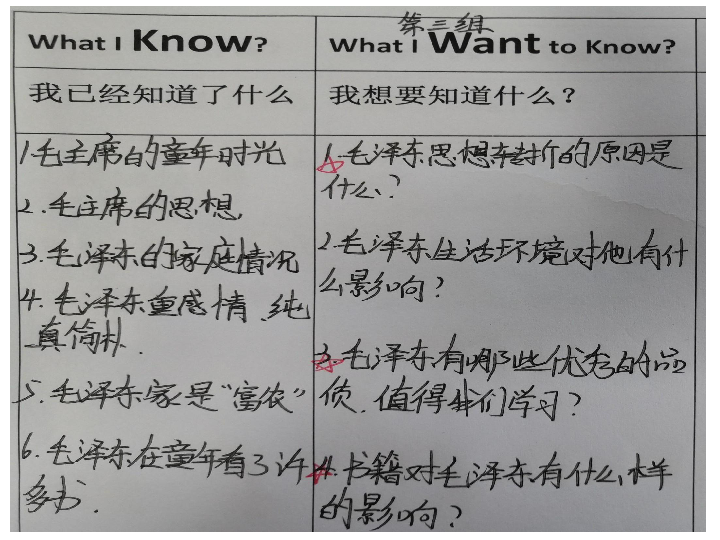 第三组
What I Know?
What I Want to Know?
我已经知道了什么
我想要知道什么？
1.毛主席的童年时光
2.毛主席的思想
3.毛泽东的家庭情况
4.毛泽东重感情、纯
真简朴.
5.毛泽东家是“富农”
6.毛泽东在童年看了许
多书.
1.毛泽东思想转折的原因是
什么?
2.毛泽东生活环境对他有什
么影响?
3.毛泽东有哪些优秀的品
质.值得我们学习?
4.书籍对毛泽东有什么样
的影响?